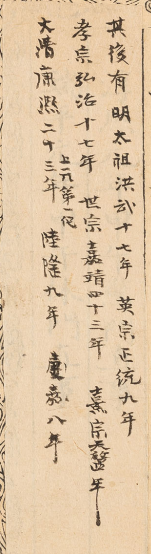 其後有 明太祖洪武十七年 英宗正統九年
孝宗弘治十七年 世宗嘉靖四十三年 熹宗天啓年
上元第一
大清康熙二十三年 陸隆九年 八年